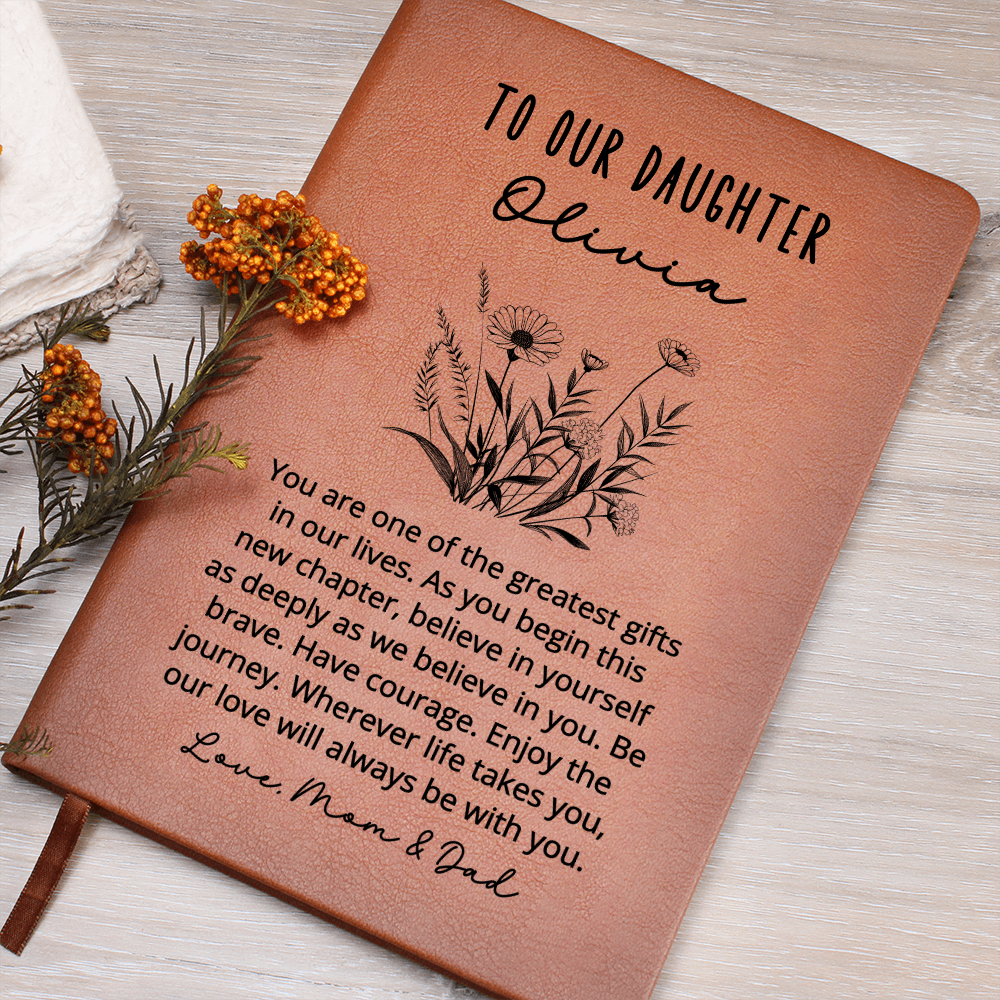 TO OUR DAUGHTER
Olivia
You are one of the greatest gifts
in our lives. As you begin this
new chapter, believe in yourself
as deeply as we believe in you. Be
brave. Have courage. Enjoy the
journey. Wherever life takes you,
our love will always be with you.
Love, Mom & Dad